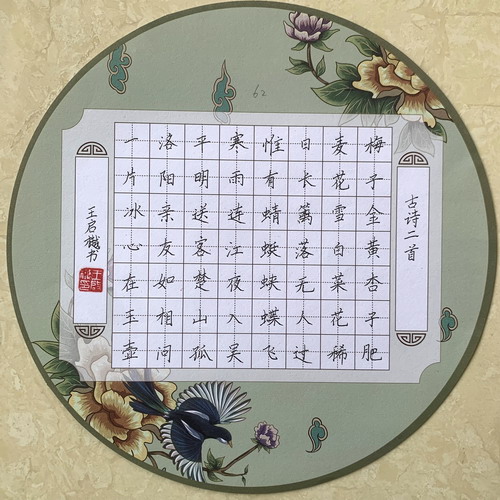 62
古诗二首
梅子金黄杏子肥
麦花雪白菜花稀
日长篱落无人过
惟有蜻蜓蛱蝶飞
寒雨连江夜入吴
平明送客楚山孤
洛阳亲友如相问
一片冰心在玉壶
王启书